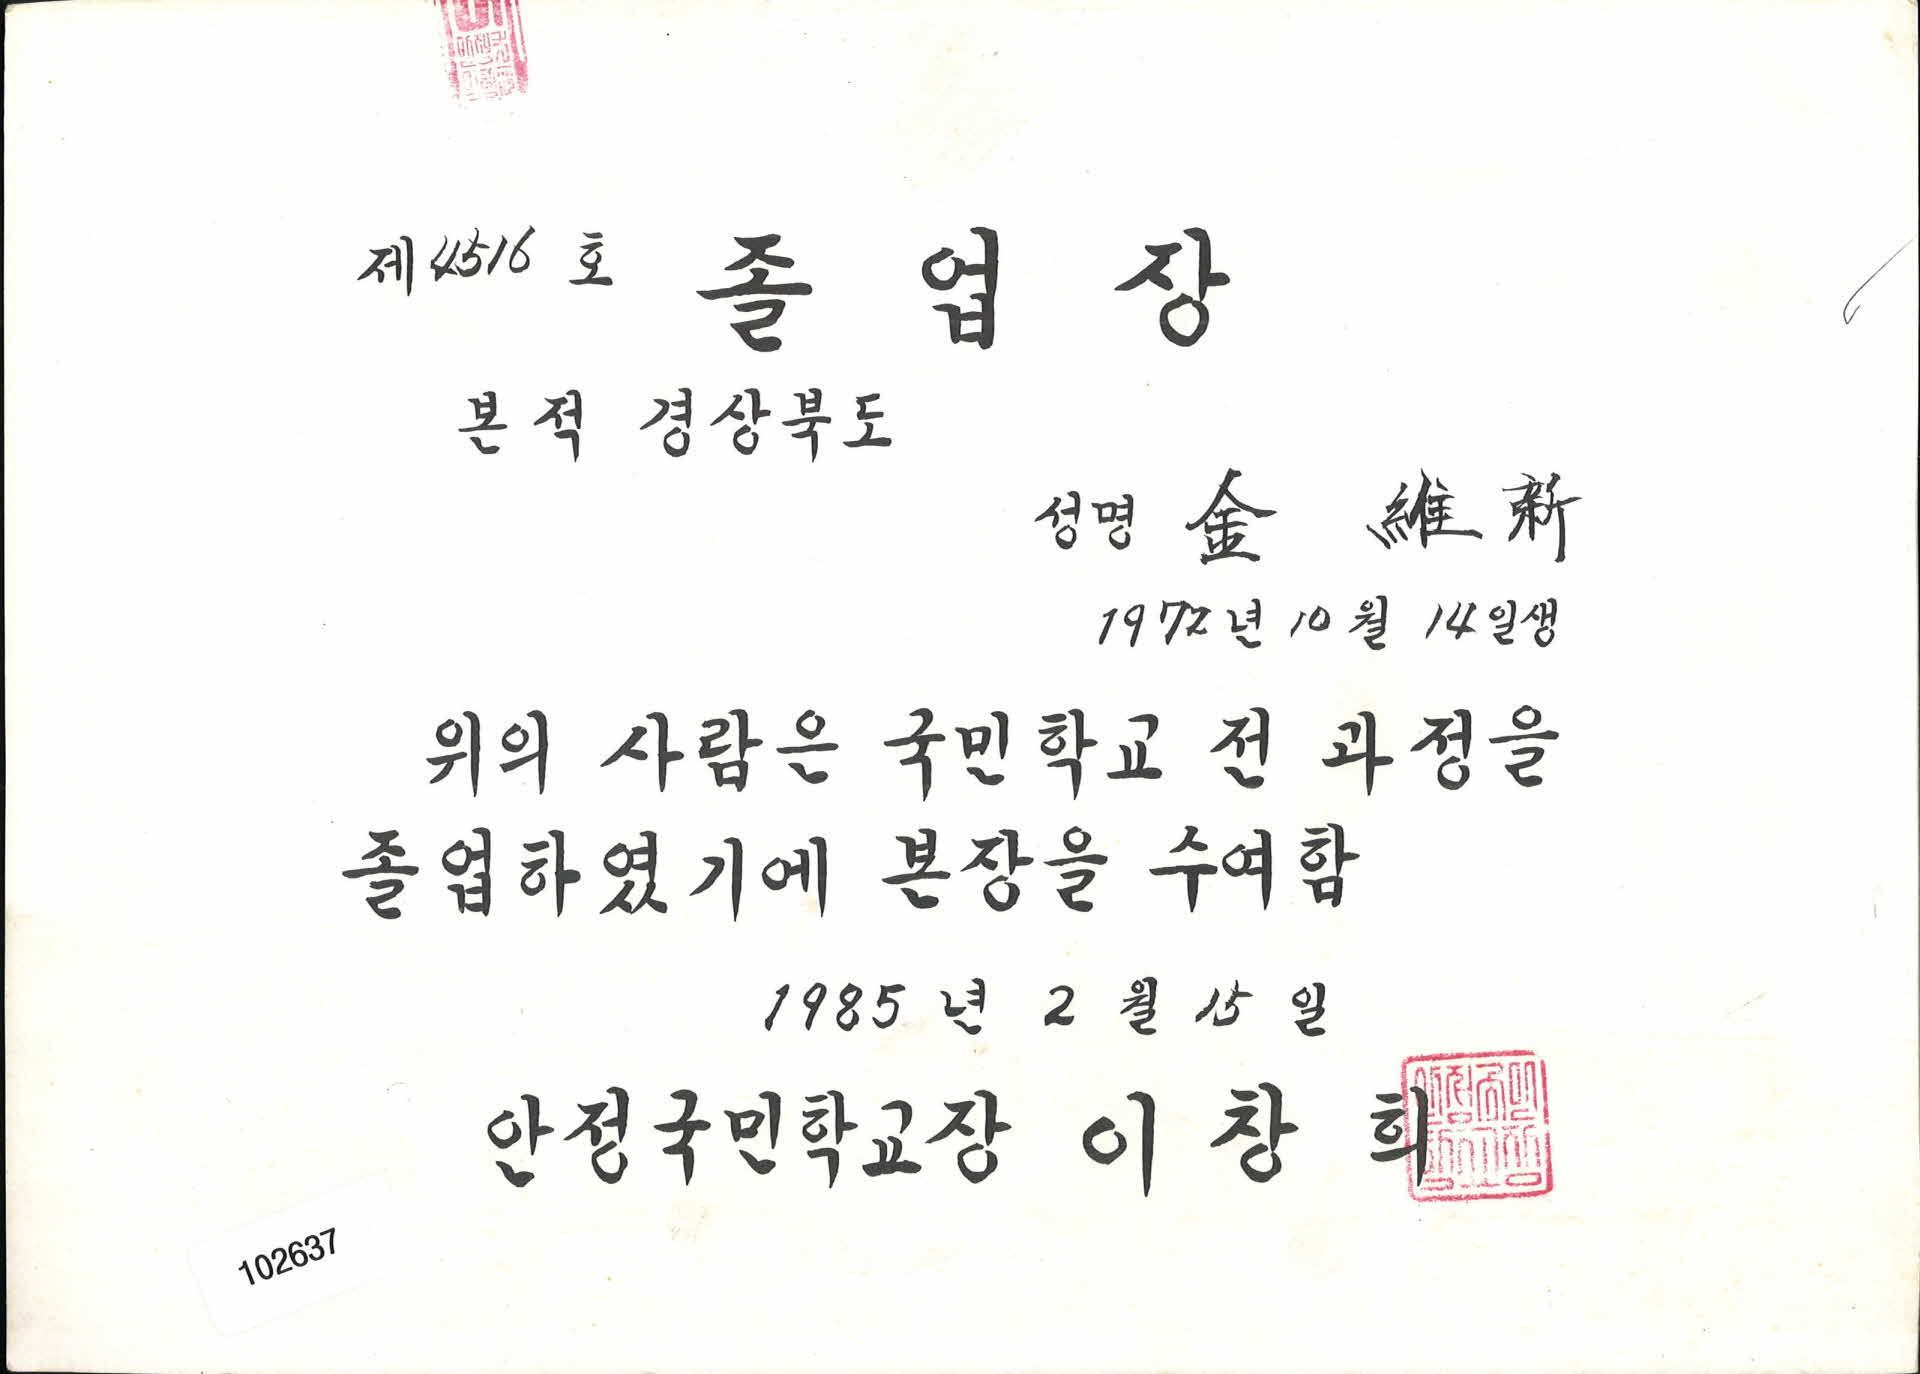 제4516호 졸업장
본적 경상북도
성명 金 維新
1972년 10월 14일생
위의 사람은 국민학교 전 과정을
졸업하였기에 본장을 수여함
1985년 2월 15일
안정국민학교장 이창희
102637